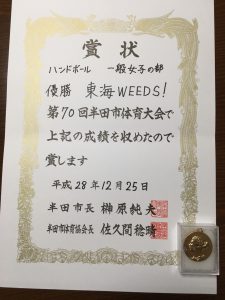 賞状
ハンドボール 一般女子の部
優勝 東海WEEDS!
第70回半田市体育大会で
上記の成績を収めたので
賞します
平成28年12月25日
半田市長 榊原純夫
半田市体育協会長 佐久間稔晴